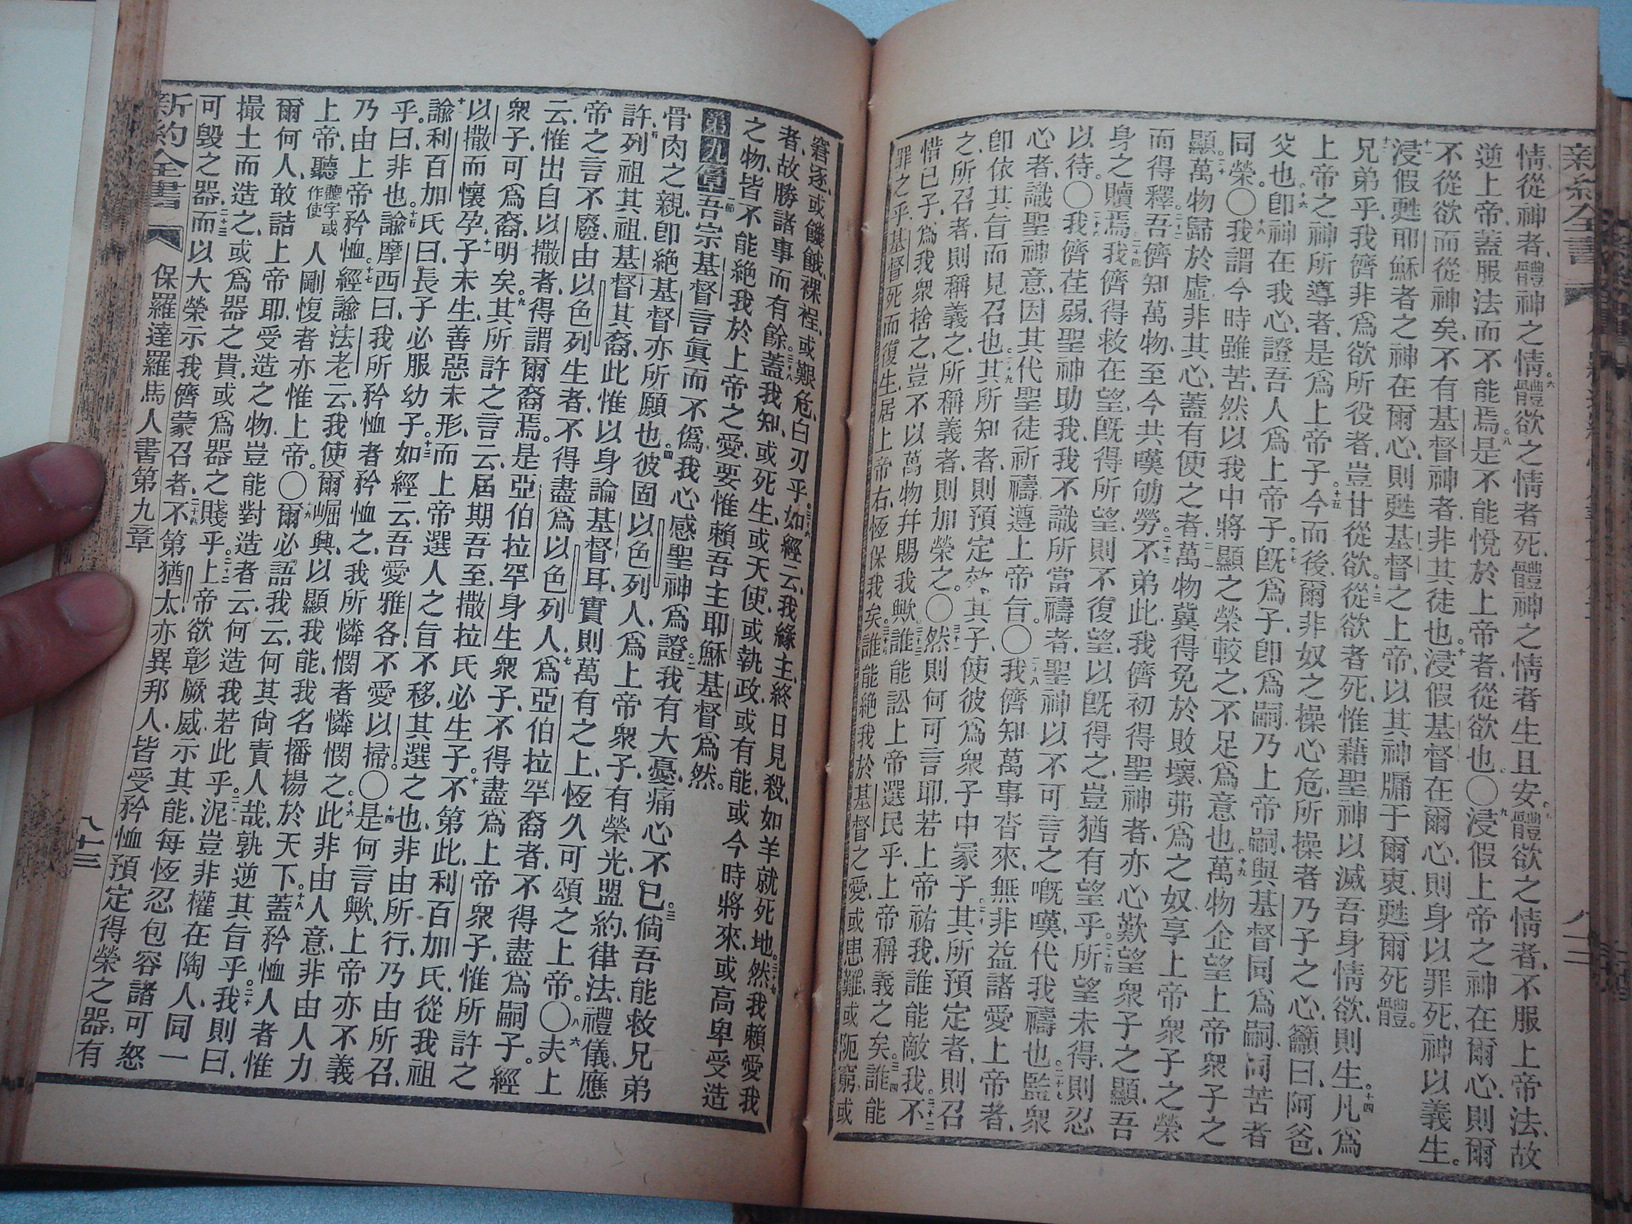 新約全書
情從神者體神之情體欲之情者死體神之情者生且安體欲之情者不服上帝法故
逆上帝蓋服法而不能焉是不能悅於上帝者從欲也〇浸假上帝之神在爾心則爾
不從欲而從神矣不有基督神者非其徒也浸假基督在爾心則身以罪死神以義生
浸假甦耶穌者之神在爾心則甦基督之上帝以其神牖于爾衷甦爾死體
兄弟乎我儕非為欲所役者豈甘從欲從欲者死惟藉聖神以滅吾身情欲則生凡為
上帝之神所導者是為上帝子今而後爾非奴之操心危所操者乃子之心籲曰阿爸
父也卽神在我心證吾人為上帝子旣為子卽為嗣乃上帝嗣與基督同為嗣同苦者
同榮〇我謂今時雖苦然以我中將顯之榮較之不足為意也萬物企望上帝衆子之
顯萬物歸於虛非其心蓋有使之者萬物冀得免於敗壞弗為之奴享上帝衆子之榮
而得釋吾儕知萬物至今共嘆劬勞不弟此我儕初得聖神者亦心歎望衆子之顯吾
身之贖焉我儕得救在望旣得所望則不復望以旣得之豈猶有望乎所望未得則忍
以待〇我儕荏弱聖神助我我不識所當禱者聖神以不可言之嘅嘆代我禱也監衆
心者識聖神意因其代聖徒祈禱遵上帝旨〇我儕知萬事沓來無非益諸愛上帝者
卽依其旨而見召也其所知者則預定效其子使彼為衆子中冢子其所預定者則召
之所召者則稱義之所稱義者則加榮之〇然則何可言耶若上帝祐我誰能敵我不
惜己子為我衆捨之豈不以萬物幷賜我歟誰能訟上帝選民乎上帝稱義之矣誰能
罪之乎基督死而復生居上帝右恆保我矣誰能絕我於基督之愛或患難或阨窮或
窘逐或饑餓裸裎或艱危白刃乎如經云我緣主終日見殺如羊就死地然我賴愛我
者故勝諸事而有餘蓋我知或死生或天使或執政或有能或今時將來或高卑受造
之物皆不能絕我於上帝之愛要惟賴吾主耶穌基督為然
第九章 一節吾宗基督言眞而不僞我心感聖神為證我有大憂痛心不已倘吾能救兄弟
骨肉之親卽絕基督亦所願也彼固以色列人為上帝衆子有榮光盟約律法禮儀應
許列祖其祖基督其裔此惟以身論基督耳實則萬有之上恆久可頌之上帝〇夫上
帝之言不廢由以色列生者不得盡為以色列人為亞伯拉罕裔者不得盡為嗣子經
云惟出自以撒者得謂爾裔焉是亞伯拉罕身生衆子不得盡為上帝衆子惟所許之
衆子可為裔明矣其所許之言云屆期吾至撒拉氏必生子不第此利百加氏從我祖
以撒而懷孕子未生善惡未形而上帝選人之旨不移其選之也非由所行乃由所召
諭利百加氏曰長子必服幼子如經云吾愛雅各不愛以掃〇是何言歟上帝亦不義
乎曰非也諭摩西曰我所矜恤者矜恤之我所憐憫者憐憫之此非由人意非由人力
乃由上帝矜恤經諭法老云我使爾崛興以顯我能我名播揚於天下蓋矜恤人者惟
上帝聽聽字或作使人剛愎者亦惟上帝〇爾必語我云何其尙責人哉孰逆其旨乎我則曰
爾何人敢詰上帝耶受造之物豈能對造者云何造我若此乎泥豈非權在陶人同一
撮土而造之或為器之貴或為器之賤乎上帝欲彰厥威示其能每恆忍包容諸可怒
可毀之器而以大榮示我儕蒙召者不第猶太亦異邦人皆受矜恤預定得榮之器有
新約全書 保羅達羅馬人書第九章 八十三